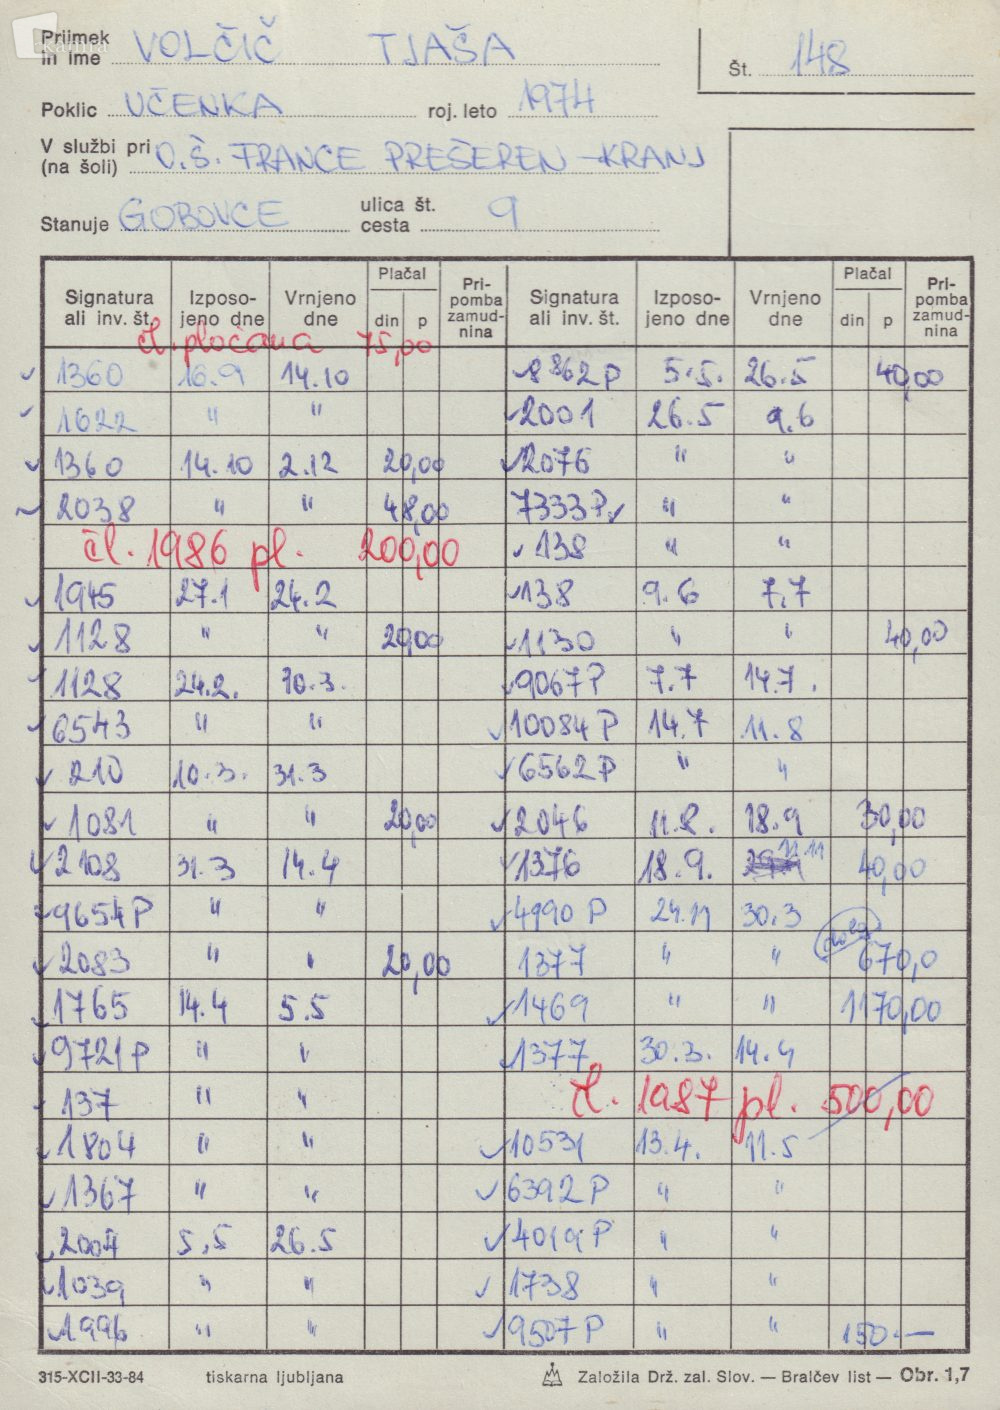 Priimek in ime VOLČIČ TJAŠA
Št. 148
Poklic UČENKA roj. leto 1974
V službi pri (na šoli) O.Š. FRANCE PREŠEREN - KRANJ
Stanuje GOBOVCE ulica št. cesta 9
Signatura ali inv. št. Izposojeno dne Vrnjeno dne Plačal din p Pripomba zamudnina Signatura ali inv. št. Izposojeno dne Vrnjeno dne Plačal din p Pripomba zamudnina
čl. plačana 75,00
1360 16.9 14.10
1622 " "
1360 14.10 2.12 20,00
2038 " " 48,00
čl. 1986 pl. 200,00
1945 27.1 24.2
1128 " " 20,00
1128 24.2. 10.3.
6543 " "
210 10.3. 31.3
1081 " " 20,00
2108 31.3 14.4
9654P " "
2083 " " 20,00
1765 14.4 5.5
9721P " "
137 " "
1804 " "
1367 " "
2004 5.5 26.5
1039 " "
1996 " "
8862P 5.5. 26.5 40,00
2001 26.5 9.6
2076 " "
7333P " "
138 " "
138 9.6 7.7
1130 " " 40,00
9067P 7.7 14.7.
10084P 14.7 11.8
6562P " "
2046 11.8. 18.9 30,00
1376 18.9. 11.11 40,00
4990P 24.11 30.3
1377 " " 670,0
1469 " " 1170,00
1377 30.3. 14.4
čl. 1987 pl. 500,00
10531 13.4. 11.5
6392P " "
4019P " "
1738 " "
9507P " " 150.—
315-XCII-33-84 tiskarna ljubljana Založila Drž. zal. Slov. — Bralčev list — Obr. 1,7